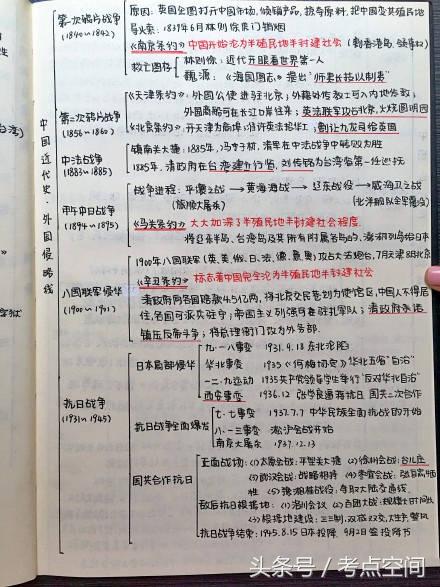 中国近代史·外国侵略线
第一次鸦片战争
(1840~1842)
原因：英国企图打开中国市场，倾销产品，掠夺原料，把中国变其殖民地
导火索：1839年6月林则徐虎门销烟
《南京条约》中国开始沦为半殖民地半封建社会（割香港岛，
救亡图存
林则徐：近代开眼看世界第一人
魏源：《海国图志》提出"师夷长技以制夷"
第二次鸦片战争
(1856~1860)
《天津条约》：外国公使进驻北京；外籍
外国商船可在长江口岸往来；英法联军攻占北京，火烧圆明园
《北京条约》：开天津为商埠；准许英法招华工；割让九龙司给英国
中法战争
(1883~1885)
镇南关大捷：1885年，冯子材，清军在中法战争中转败为胜
1885年，清政府在台湾建立行省，刘铭传为台湾省第一任巡抚
甲午中日战争
(1894~1895)
战争进程：平壤之战→黄海海战→辽东战役→威海卫之战
(旅顺大屠杀) (北洋舰队全军覆没)
《马关条约》大大加深了半殖民地半封建社会程度
将辽东半岛、台湾岛及其所有附属各岛屿、澎湖列岛给日本
八国联军侵华
(1900~1901)
1900年八国联军(英、美、俄、日、法、德、意、奥)攻占大沽炮台，7月天津8月北京
《辛丑条约》标志着中国完全沦为半殖民地半封建社会
清政府向各国赔款4.5亿两，将北京东交民巷划为使馆区，中国人不得居
住，各国可派兵驻守；帝国主义列强可在驻扎军队；清政府承诺
镇压反帝斗争；将总理衙门改为外务部.
抗日战争
(1931~1945)
日本局部侵华
九·一八事变 1931.9.18 东北沦陷
华北事变 1935《何梅协定》华北五省"自治"
一二·九运动 1935共产党领导学生举行"反对华北自治"
西安事变 1936.12 张学良逼蒋抗日 国共二次合作
抗日战争全面爆发
七·七事变 1937.7.7 中华民族全面抗战的开始
八·一三事变 淞沪会战开始
南京大屠杀 1937.12.13
国共合作抗日
正面战场：(1)太原会战：平型关大捷 (2)徐州会战：台儿庄
(3)武汉会战：战略相持 (4)枣宜会战：张自忠牺
牲 (5)豫湘桂战役：争取大陆交通线
敌后抗日根据地：(1)洛川会议 (2)百团大战：规模大时间长
(3)根据地建设：三三制，双减双交，大生产，整风
抗日战争结束：1945.8.15日本投降，9月2日签投降书
头条号 / 考点空间